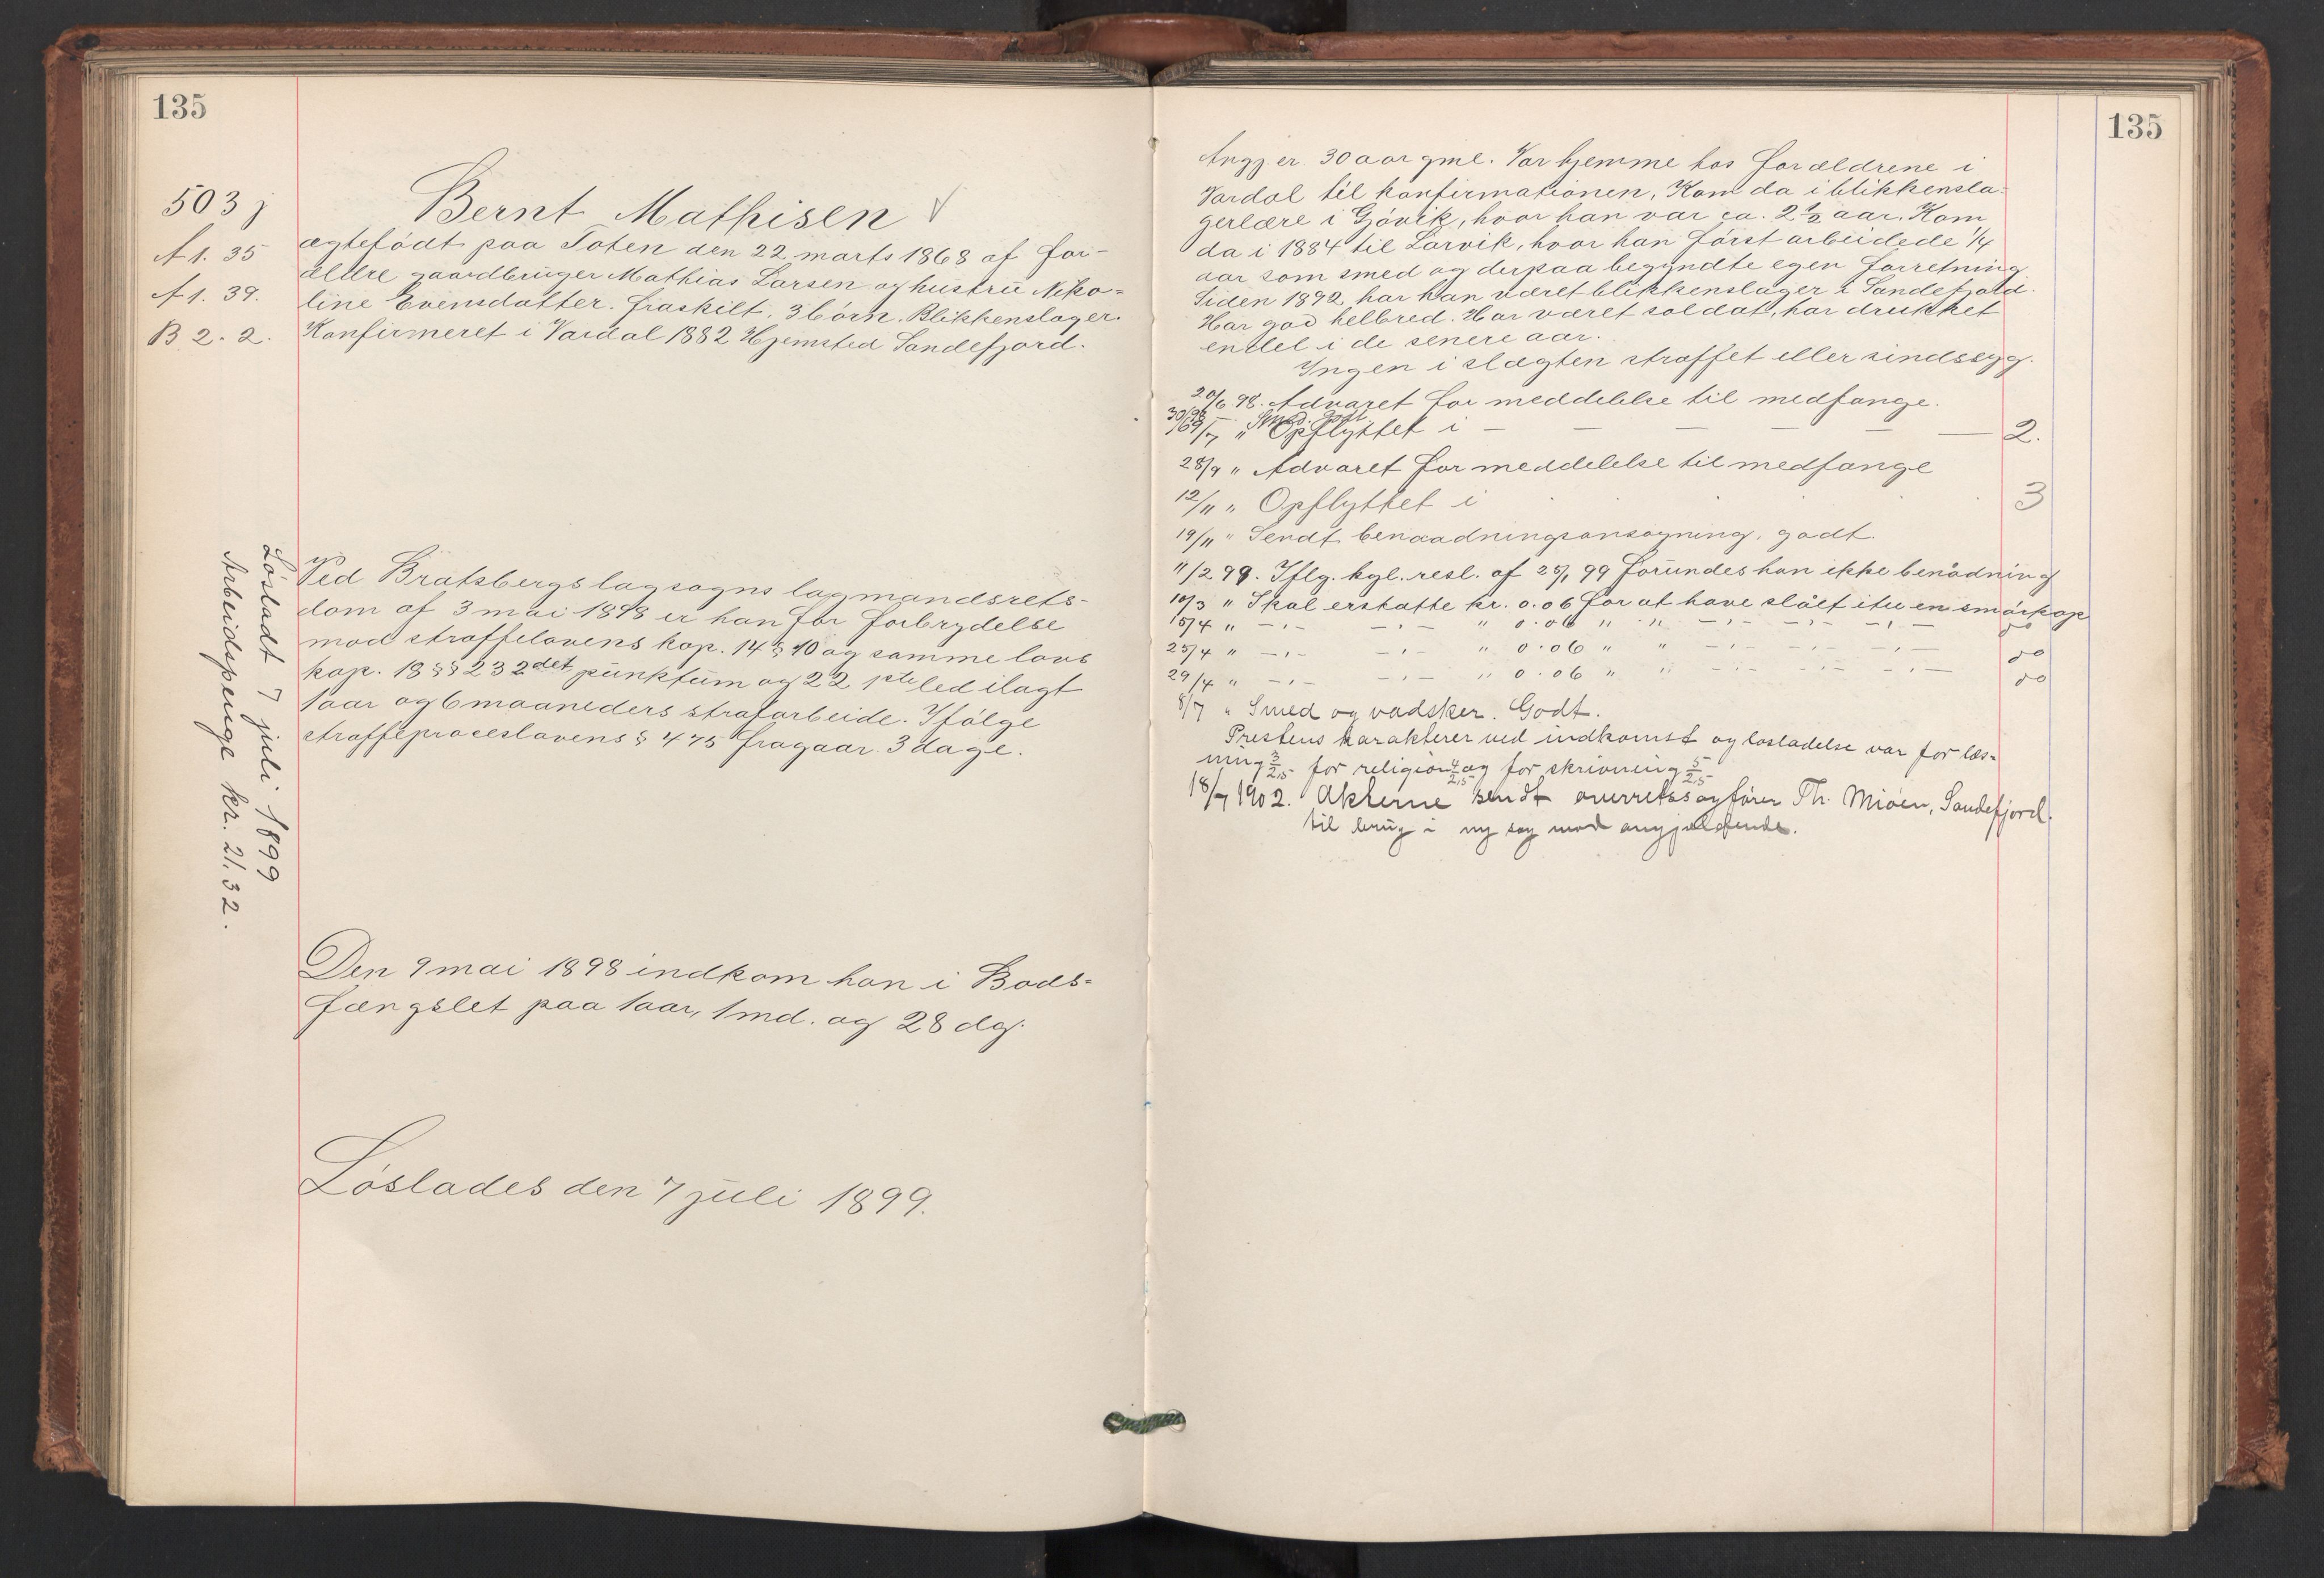 135
503 j
A 1. 35
A 1. 39.
B 2. 2.
Bernt Mathisen
ægtefödt paa Toten den 22 marts 1868 af for-
ældre gaardbruger Mathias Larsen og hustru Niko=
line Evensdatter. Fraskilt, 3 börn. Blikkenslager.
Konfirmeret i Vardal 1882 Hjemsted Sandefjord.
Ved Bratsbergs lagsogns lagmandsrets-
dom af 3 mai 1898 er han for forbrydelse
mod straffelovens kap. 14 § 10 og samme lovs
kap. 18 §§ 23 2det punktum og 22 1ste led ilagt
1 aar og 6 maaneders strafarbeide. Ifölge
straffeproceslovens § 475 fragaar 3 dage.
Lösladt 7 juli 1899
Arbeidspenge kr. 21.32.
Den 9 mai 1898 indkom han i Bods=
fængslet paa 1 aar, 1 md. og 28 dg.
Löslades den 7 juli 1899.
135
Angj er 30 aar gml. Var hjemme hos forældrene i
Vardal til konfirmationen, Kom da i blikkensla-
gerlære i Gjövik, hvor han var ca. 2 1/2 aar. Kom
da i 1884 til Larvik, hvor han först arbeidede 1/4
aar som smed og derpaa begyndte egen forretning.
Siden 1892 har han været blikkenslager i Sandefjord.
Har god helbred. Har været soldat, har drukket
endel i de senere aar.
Ingen i slægten straffet eller sindssyg.
20/6 98. Advaret for meddelelse til medfange.
30/6 98 Smed. Godt.
9/7 " Opflyttet i — — — — — — 2.
28/9 " Advaret for meddelelse til medfange
12/11 " Opflyttet i . . . . 3
19/11 " Sendt benaadningsansøgning, godt.
11/2 99. Iflg. kgl. resl. af 25/1 99 forundes han ikke benådning
10/3 " Skal erstatte kr. 0.06 for at have slået itu en smörkop
15/4 " —,— —,— " 0.06 " " —,— —,— —,— do
25/4 " —,— —,— " 0.06 " " —,— —,— —,— do
29/4 " —,— —,— " 0.06 " " —,— —,— —,— do
8/7 " Smed og vadsker. Godt.
Prestens karakterer ved indkomst og løsladelse var for læs-
ning 3/2,5 for religion 4/2,5 og for skrivning 5/2,5
18/7 1902. Akterne sendt overretssagfører Th. Miöen, Sandefjord.
til brug i ny sag mod angjældende.